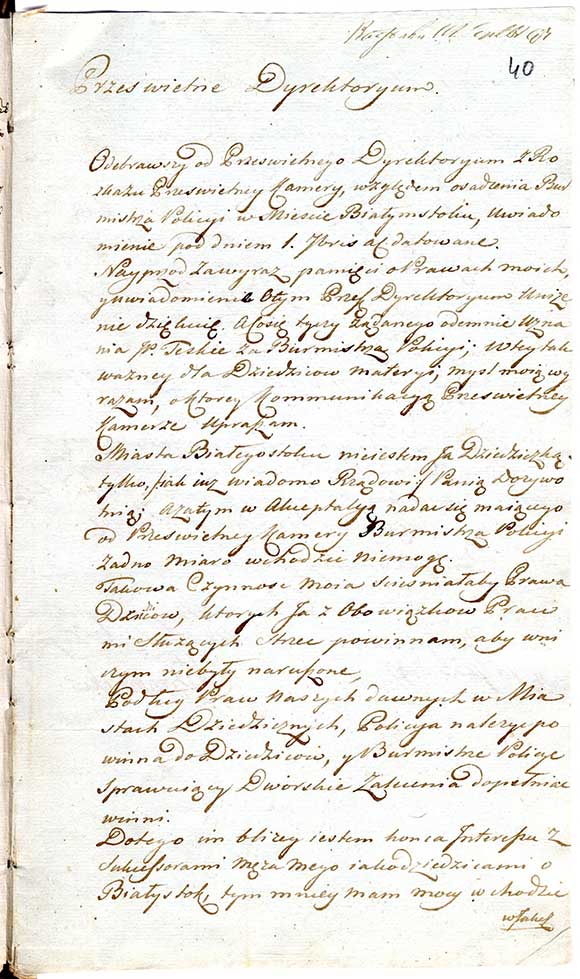 40
Prześwietne Dyrektoryum.
Odebrawszy od Prześwietnego Dyrektoryum z Ro
zkazu Prześwietney Kamery, względem osadzenia Bur
mistrza Policyi w Mieście Białymstoku, Uwiado
mienie pod dniem 1. 7bris ac datowane.
Nayprzod Zawyraz pamięci o Prawach moich,
y uwiadomienie Otym Prześ Dyrektoryum Uniże
nie dziękuię. Acosię tyczy żądanego odemnie Uzna
nia JP. Teskie za Burmistrza Policyi; Wtey tak
ważney dla Dziedzicow materyi, myśl moię wy
rażam, o ktorey Kommunikacyą Prześwietney
Kamerze Upraszam.
Miasta Białegostoku nieiestem Ja Dziedziczką,
tylko /:iak iuż wiadomo Rządowi:/ Panią Dożywo
tnią; Azatym w Akceptacyą nadac się maiącego
od Prześwietney Kamery Burmistrza Policyi
żadno miaro wchodzić niemogę.
Takowa Czynnosc moia scieśniałaby Prawa
Dziców, ktorych Ja z Obowiązkow Praw
mi Służących strzec powinnam, aby wni
czym niebyły naruszone,
Podług Praw naszych dawnych w Mia
stach Dziedzicznych, Policyja należyc po
winna do Dziedzicow, y Burmistrz Policye
sprawuiący Dworskie Zalecenia dopełniac
winni.
Dotego im bliżey iestem konca Interessu z
Sukcessorami Męża Mego iako dziedzicami o
Białystok, tym mniey mam mocy wchodzic